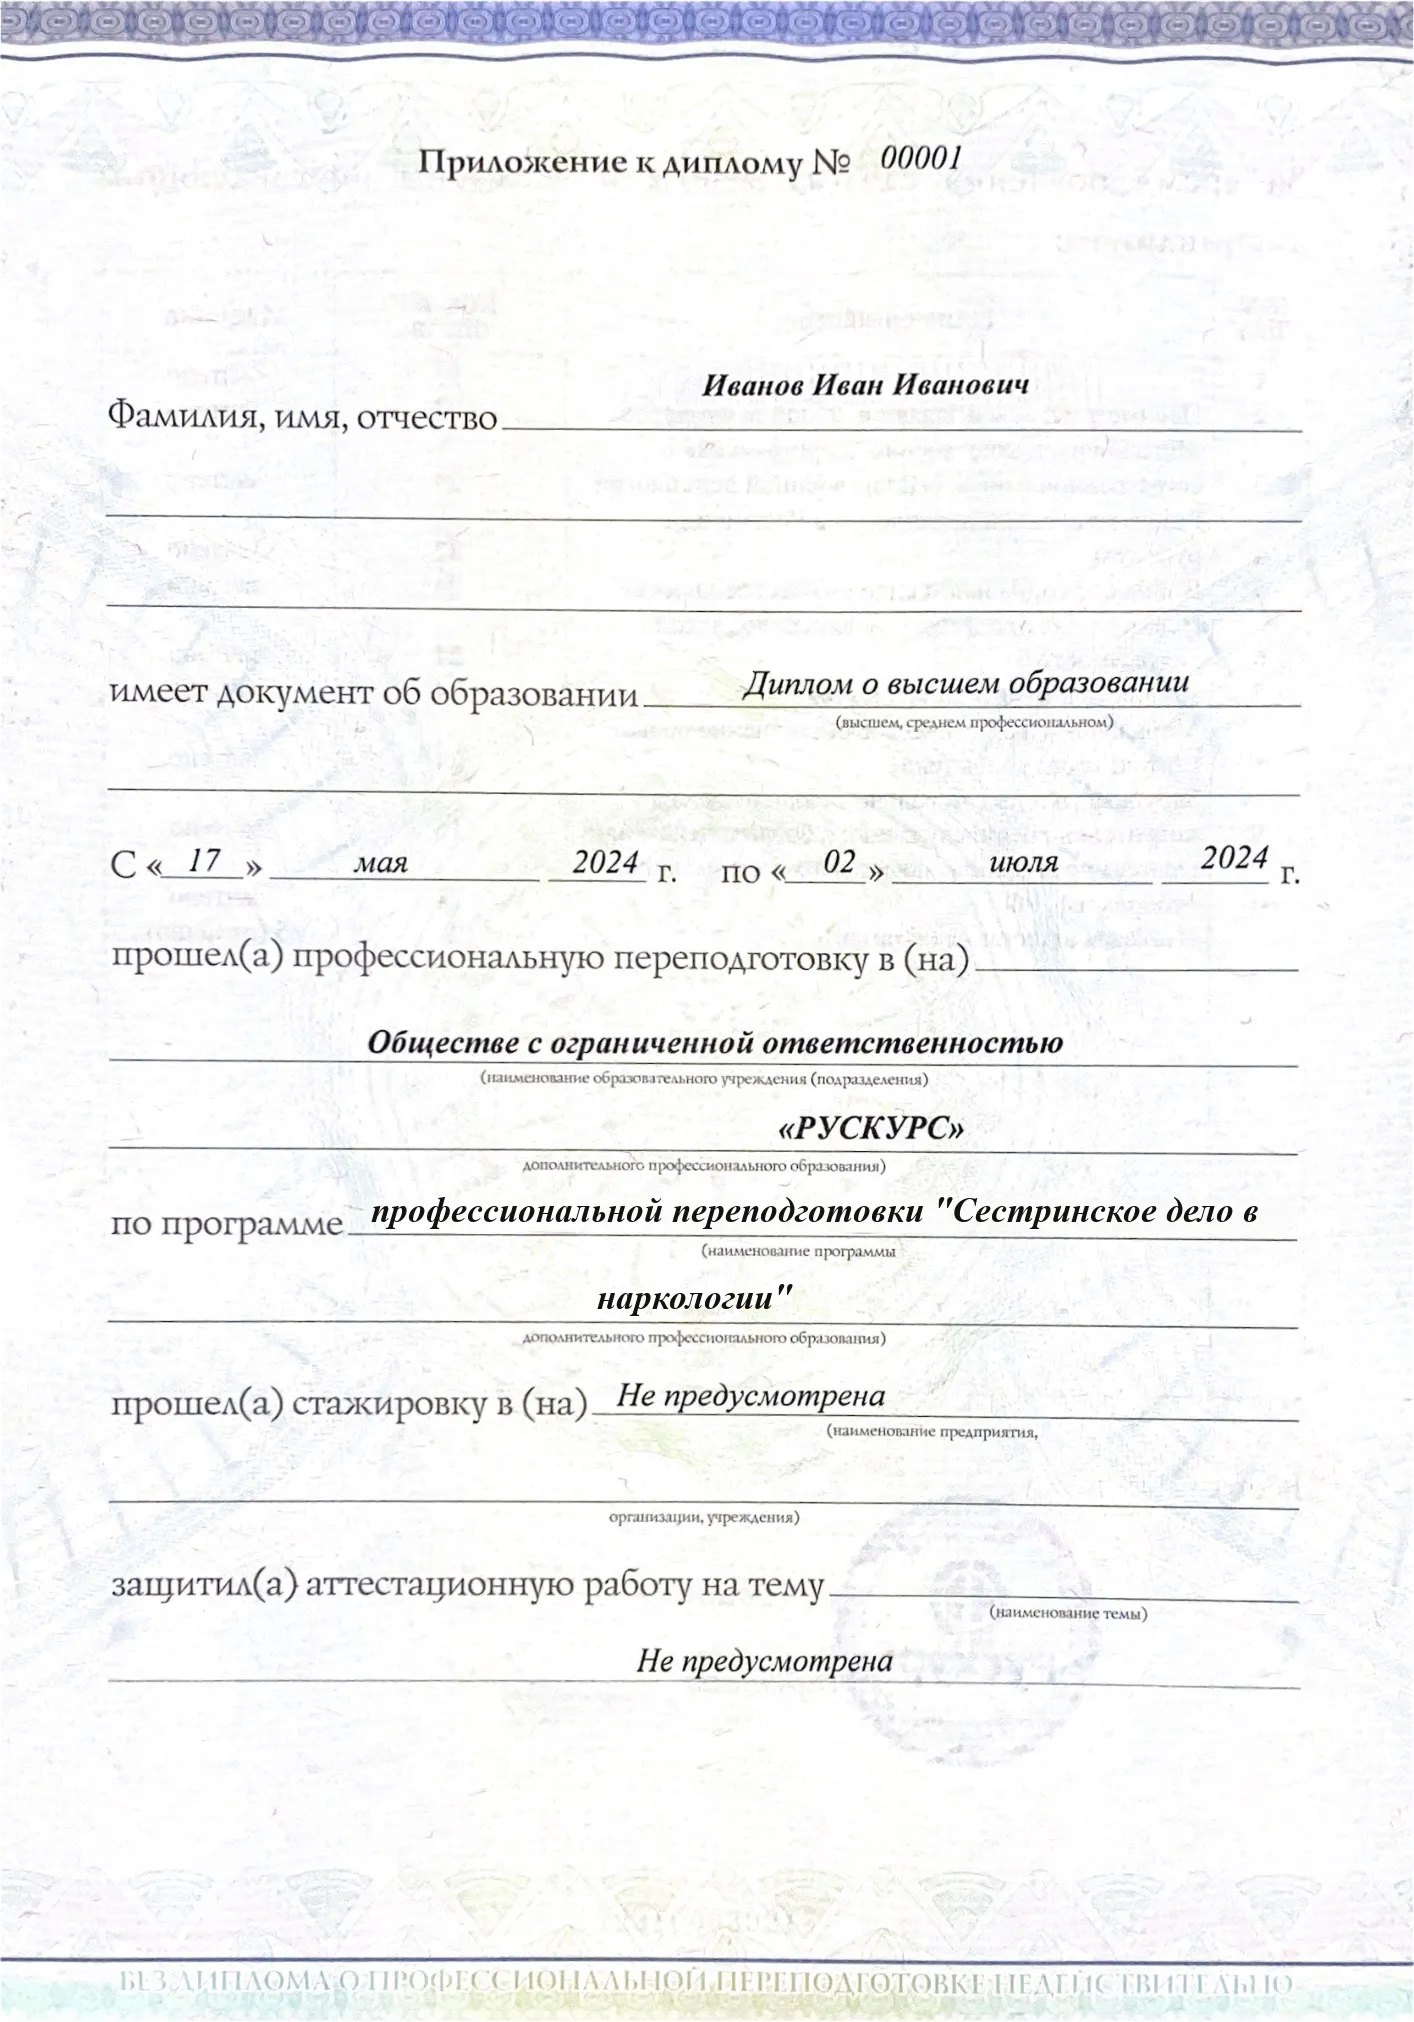 Приложение к диплому № 00001
Иванов Иван Иванович
Фамилия, имя, отчество
имеет документ об образовании Диплом о высшем образовании
(высшем, среднем профессиональном)
С « 17 » мая 2024 г. по « 02 » июля 2024 г.
прошел(а) профессиональную переподготовку в (на)
Обществе с ограниченной ответственностью
(наименование образовательного учреждения (подразделения)
«РУСКУРС»
дополнительного профессионального образования)
по программе профессиональной переподготовки "Сестринское дело в
(наименование программы
наркологии"
дополнительного профессионального образования)
прошел(а) стажировку в (на) Не предусмотрена
(наименование предприятия,
организации, учреждения)
защитил(а) аттестационную работу на тему
(наименование темы)
Не предусмотрена
БЕЗ ДИПЛОМА О ПРОФЕССИОНАЛЬНОЙ ПЕРЕПОДГОТОВКЕ НЕДЕЙСТВИТЕЛЬНО